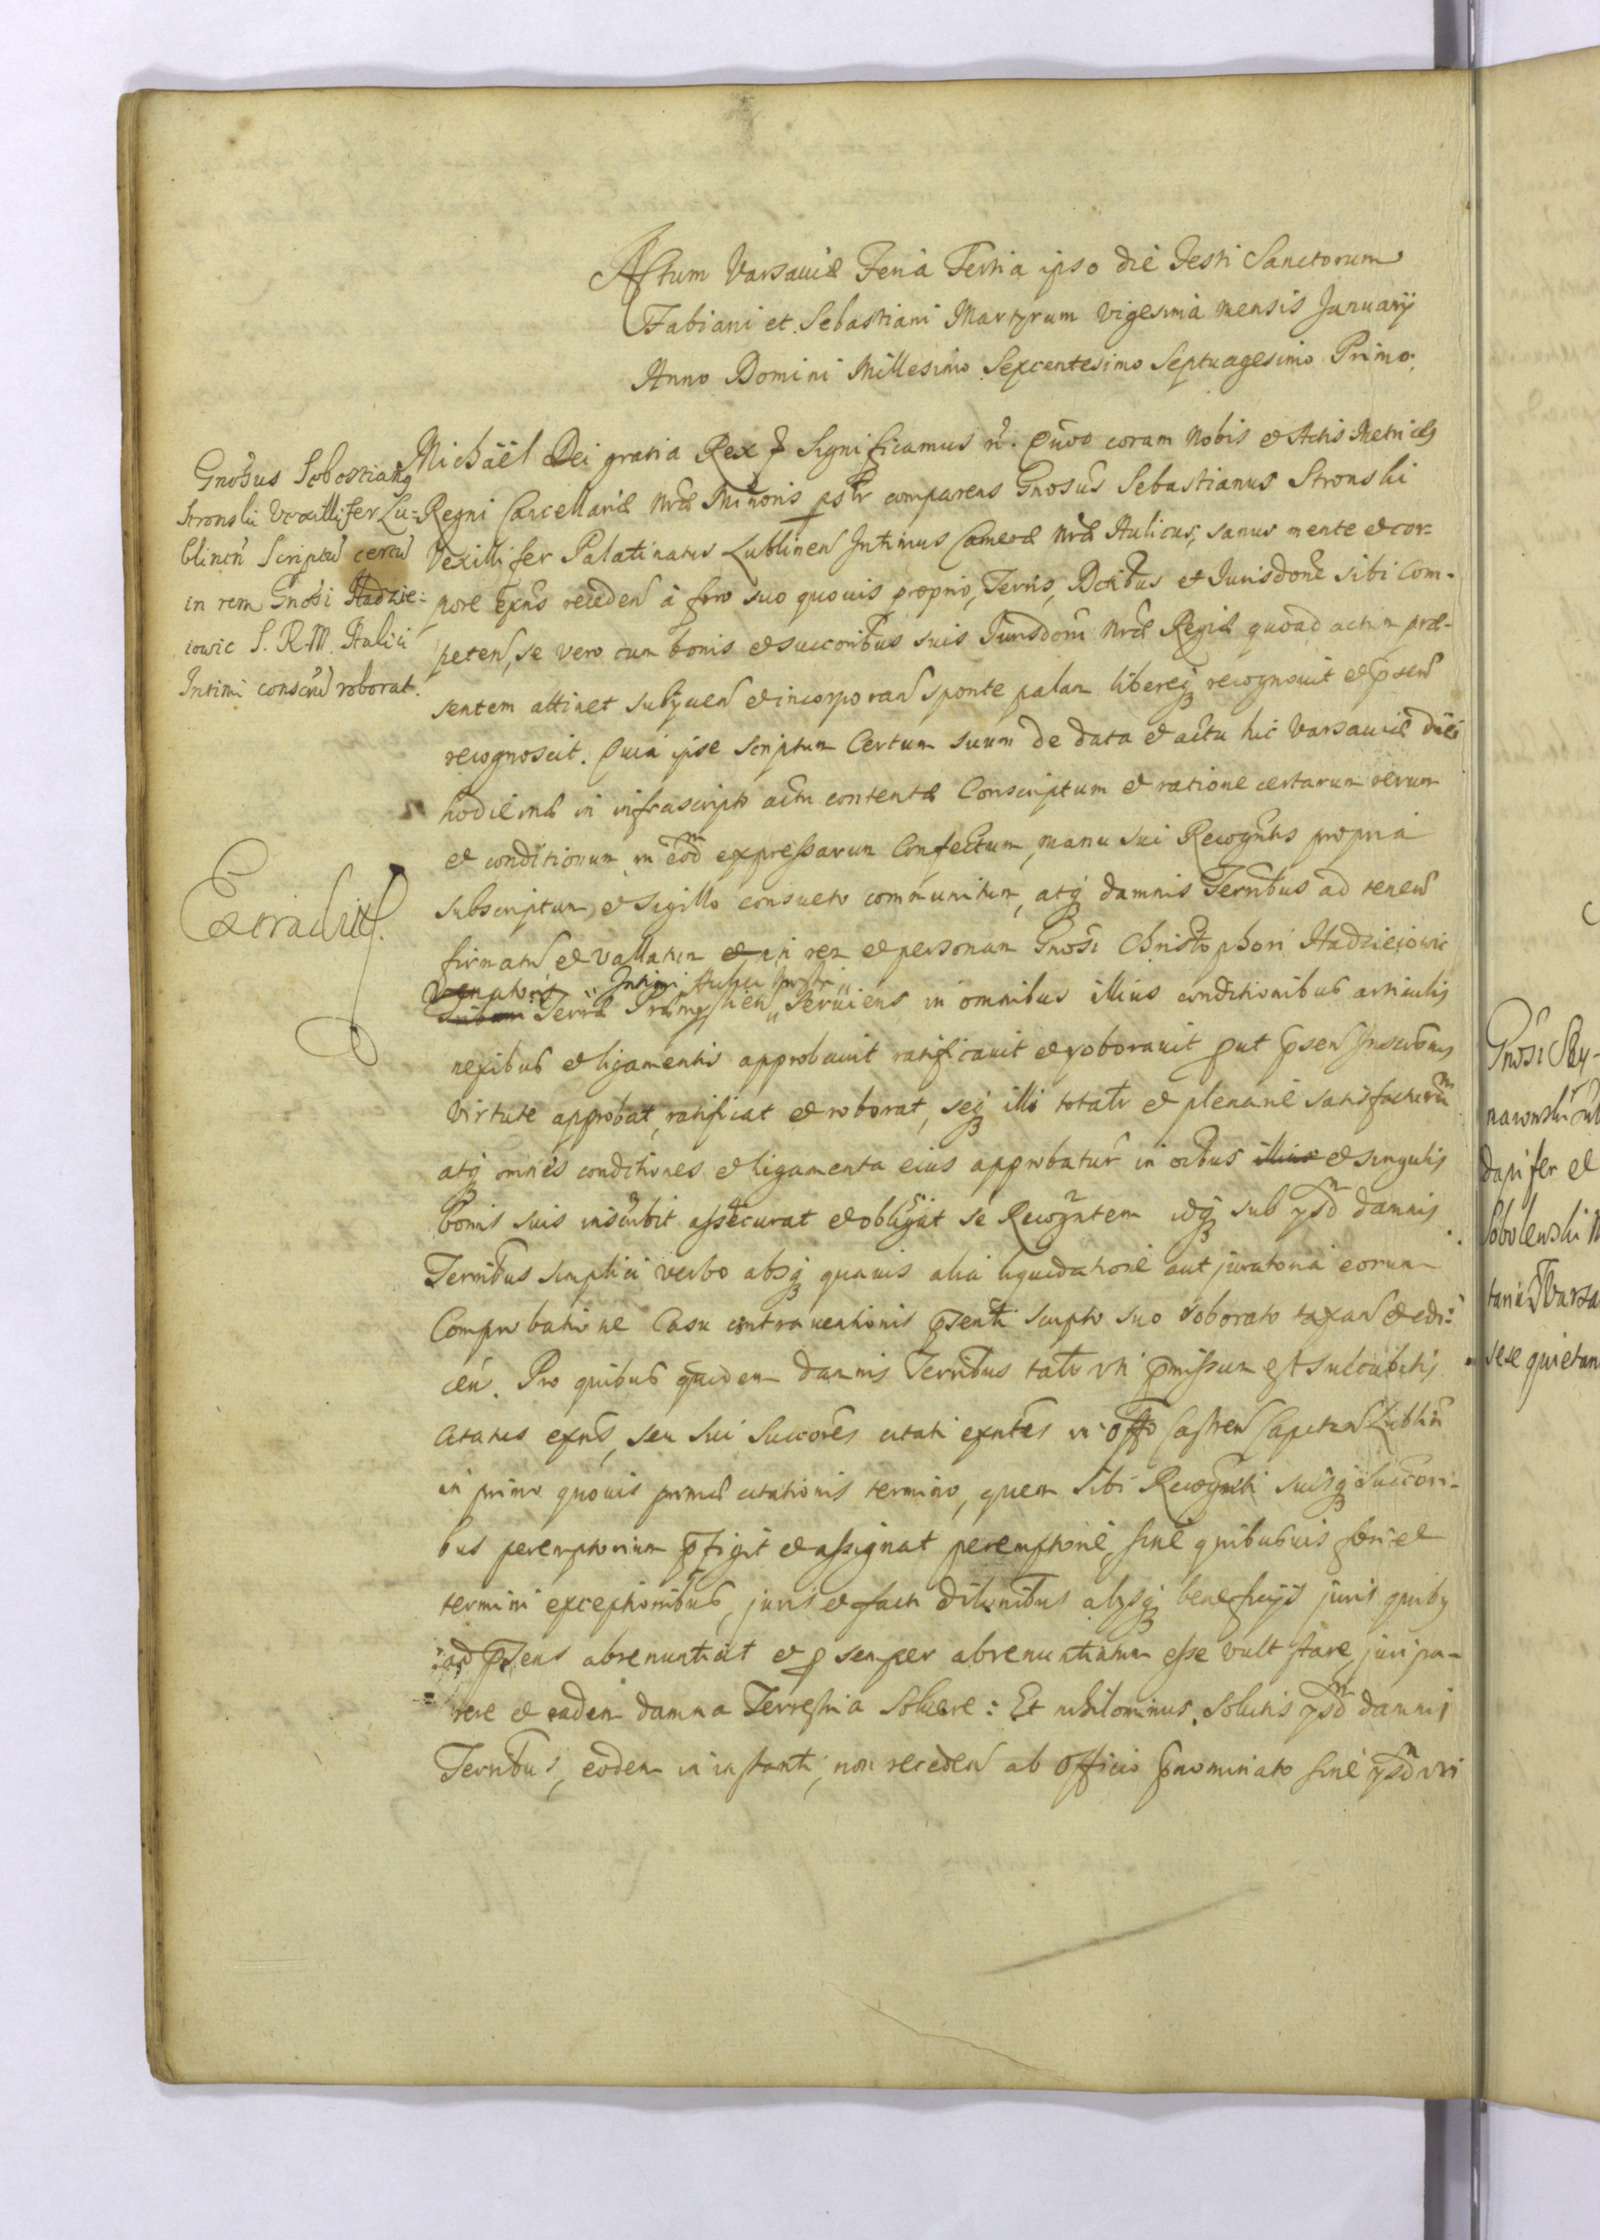 Actum Varsaviæ Feria Tertia ipso die Festi Sanctorum
Fabiani et Sebastiani Martyrum vigesima mensis Januarij
Anno Domini Millesimo Sexcentesimo Septuagesimo Primo.
Gnosus Sebastianq
Stronski Vexillifer Lu-
blinen Scriptu certu
in rem Gnosi Hadzie-
iowic S. R. M. Aulici
Intimi conscru roborat.
Michaël Dei gratia Rex Significamus n. Quod coram Nobis et Actis Metrices
Regni Cancellariæ Nræ Minoris pstr comparens Gnosus Sebastianus Stronski
Vexillifer Palatinatus Lublinen Intimus Cameræ Nræ Aulicus, sanus mente et cor-
pore exns receden à foro suo quovis proprio, Terris, Dctibus et Jurisdone sibi Com-
peten, se vero cum bonis et succoribus suis Jurisdoni Nræ Regiæ quoad actum præ-
sentem attinet subijcien et incorporan sponte palam libereq recognovit et psen
recognoscit. Quia ipse scriptum Certum suum de data et actu hic Varsaviæ diei
hodiernæ in infrascripto actu contentæ Conscriptum et ratione certarum rerum
et conditionum in eod expressarum Confectum, manu sui Recogntis propria
subscriptum, et sigillo consueto communitum, atq damnis Terribus ad tenen
Extradit.
firmatu et vallatum et in rem et personam Gnosi Christophori Hadzieiowic
Venatoris Intimi Aulici Nostri
Terræ Præmyslien Serviens in omnibus illius conditionibus articulis
nexibus et ligamentis approbavit ratificavit et roboravit put psen Inscronis
virtute approbat, ratificat et roborat, seq illi totatr et plenariè satisfacturum
atq omnes conditiones et ligamenta eius approbatur in oibus illius et singulis
bonis suis inscribit assecurat et obligat se Recogntem idq sub ysd damnis
Terribus simplici verbo absq quavis alia liquidatione aut juratoria eorum
Comprobatione Casu contraventionis psenti scripto suo roborato taxan et edi-
cen. Pro quibus quidem damnis Terribus tatr uti pmissum est succubitis
citatus exns, seu sui Succores citati exntes in Offo Castren Capitan Lublin
in primo quovis primæ citationis termino, quem sibi Recognti suisq succori-
bus peremptorium pfigit et assignat peremptoriè, sine quibusvis fori et
termini exceptionibus, juris et facti dilonibus alysq beneficijs juris quiby
ad psens abrenuntiat et p semper abrenuntiatum esse vult stare, juri pa-
rere et eadem damna Terrestria solvere: Et nihilominus, solutis ysd damnis
Terribus, eodem in instanti, non receden ab Officio pnominato sine ysd uti
Gnosi Sky-
dapifer et
Sobolenski
sese quietan